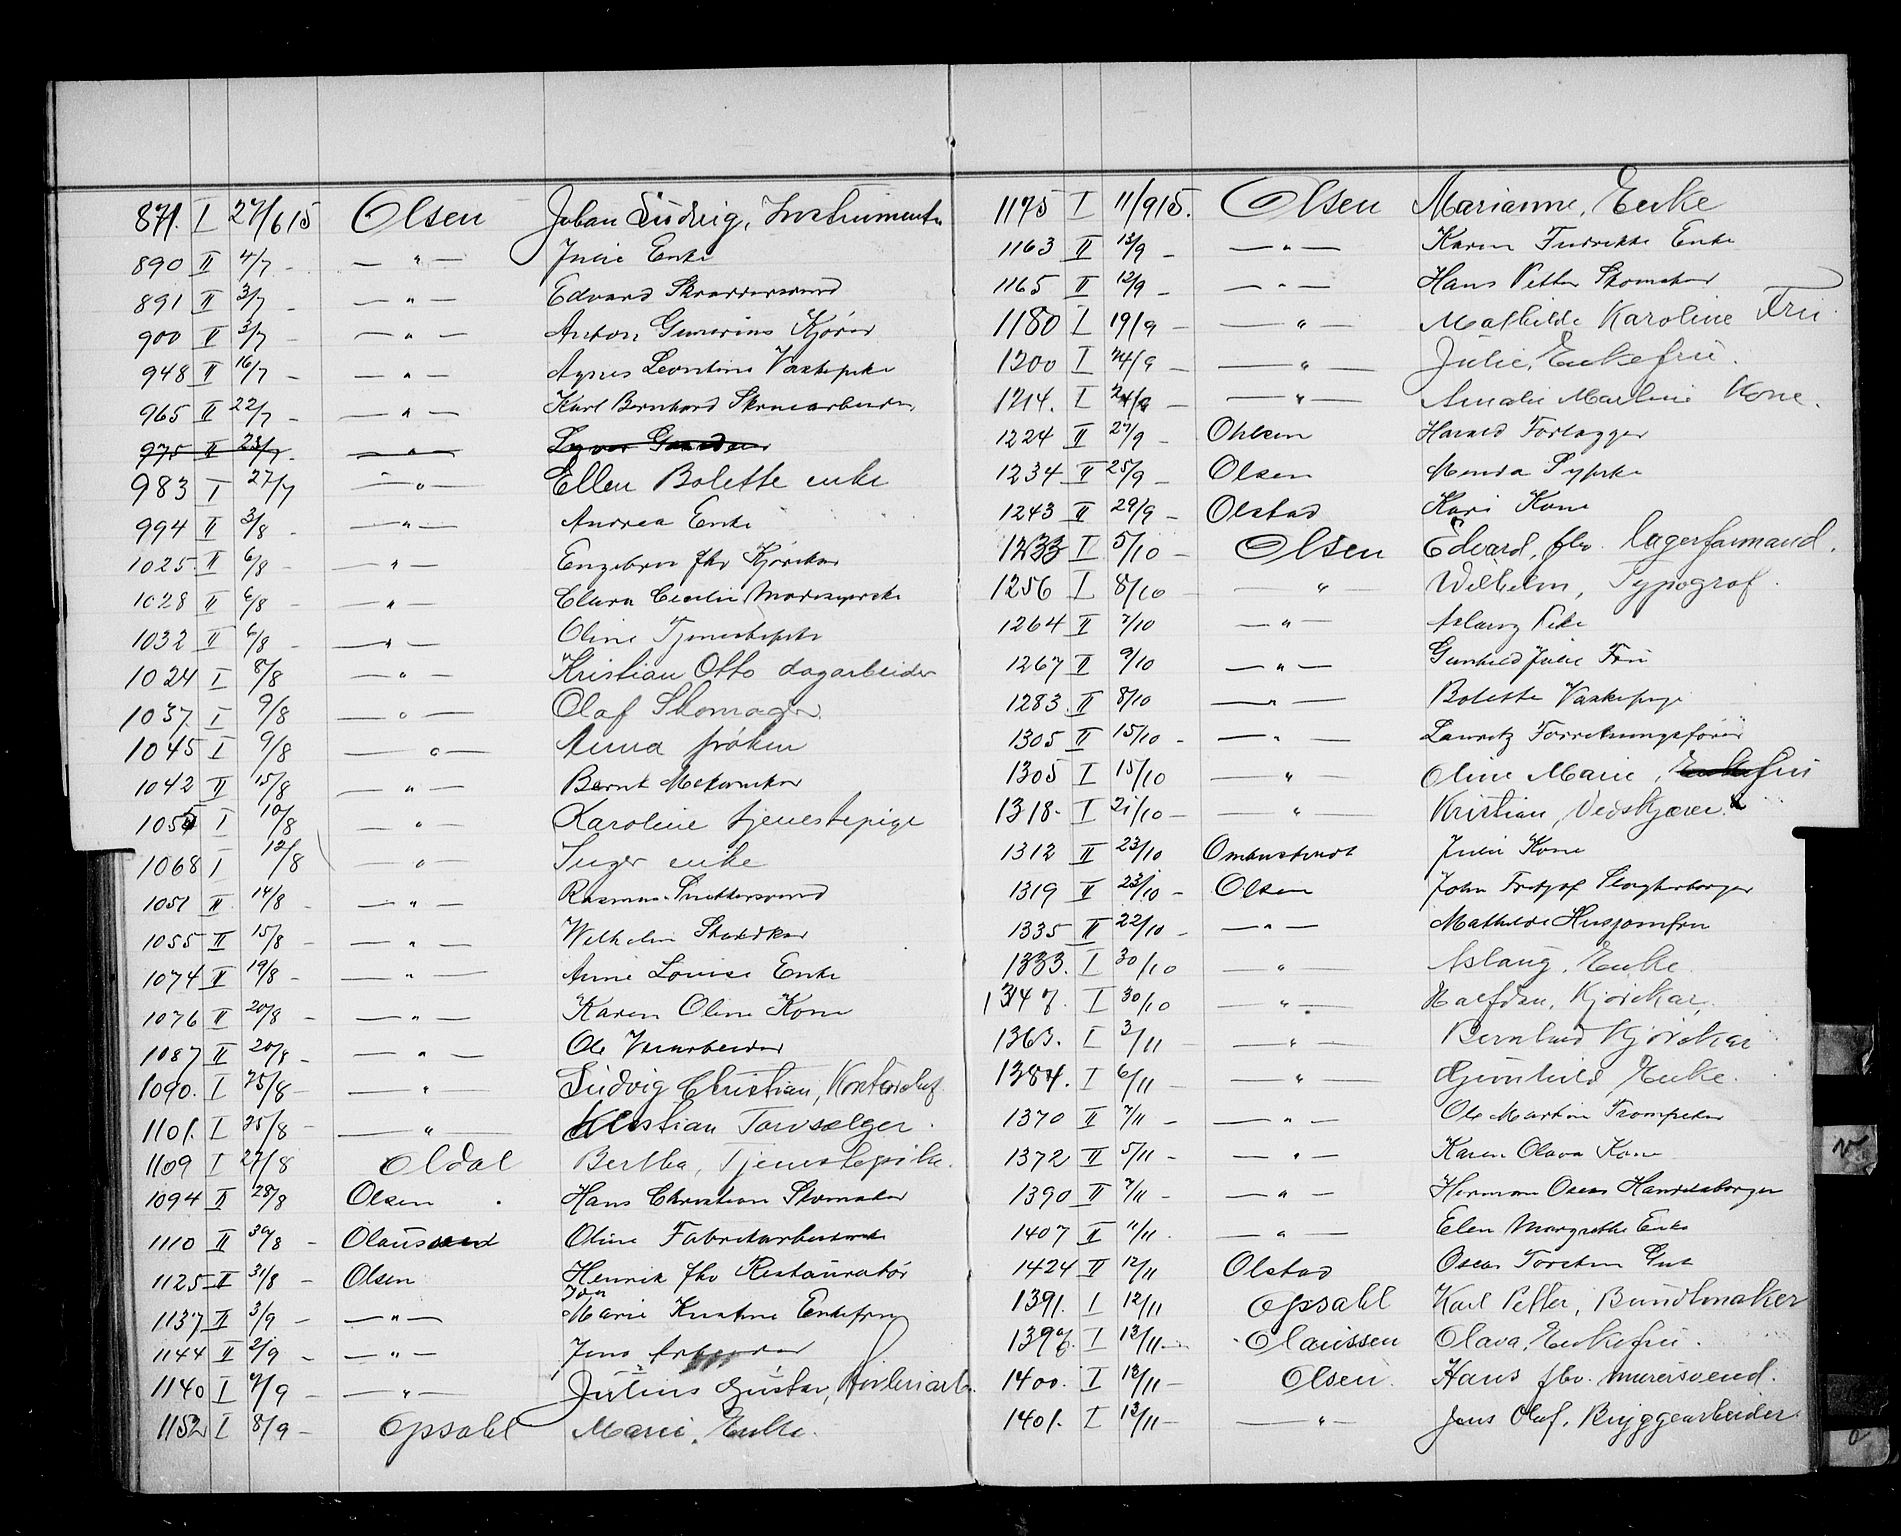 871. I 27/6 15 Olsen Johan Ludvig, Instrumentm
890 II 4/7 - — " — Julie Enke
891 II 3/7 - — " — Edvard Skræddersvend
900 II 3/7 - — " — Anton Gunerius Kjører
948 II 16/7 - — " — Agnes Leontine Vaskepike
965 II 22/7 - — " — Karl Bernhard
975 II 23/7 - — " —
983 I 27/7 — " — Ellen Bolette enke
994 II 3/8 - — " — Andrea Enke
1025 II 6/8 - — " — Engebret fhv Kjørekar
1028 II 6/8 - — " — Clara Cecilie
1032 II 6/8 - — " — Oline Tjenestepike
1024 I 8/8 — " — Kristian Otto dagarbeider
1037. I 9/8 — " — Olaf Skomager.
1045 I 9/8 — " — Anna frøken
1042 II 15/8 — " — Bernt Mekaniker
105 I 10/8 — " — Karoline tjenestepige
1068 I 12/8 — " — Inger enke
1051 II 14/8 - — " — Rasmus Snekkersvend
1055 II 15/8 - — " — Wilhelm
1074 II 19/8 - — " — Anne Louise Enke
1076 II 20/8 - — " — Karen Oline Kone
1087 II 20/8 - — " — Ole
1090. I 25/8 - — " — Ludvig Christian, Kontorchef
1101. I 25/8 - — " — Kristian Torvsælger.
1109 I 27/8 Oldal Bertha, Tjenestepike.
1094 II 28/8 Olsen Hans Christian Skomaker
1110 II 30/8 - Olaussen Oline Fabrikarbeiderske
1125 II 31/8 - Olsen Henrik fhv Restauratør
Ida
1137 II 3/9 - — " — Marie Kristine Enkefru
1144 II 2/9 - — " — Jens Arbeider
1140 I 7/9 - — " — Julius Gustav,
1152 I 8/9 - Opsahl Marie, Enke.
1175 I 11/9 15. Olsen Marianne, Enke
1163 II 13/9 - — " — Karen Fredrikke Enke
1165 II 12/9 - — " — Hans Petter Skomaker
1180 I 19/9 - — " — Mathilde Karoline Fru.
1200 I 24/9 - — " — Julie, Enkefru.
1214. I 24/9 - — " — Amalie Martine Kone.
1224 II 27/9 - Ohlsen Harald Forlægger
1234 II 25/9 - Olsen Menda Sypike
1243 II 29/9 - Olstad Kari Kone
1233 I 5/10 - Olsen Edvard, fhv. lagerformand.
1256 I 8/10 - — " — Wilhelm, Typograf.
1264 II 7/10 — " — Aslaug Pike
1267 II 9/10 — " — Gunhild Julie Fru
1283 II 8/10 — " — Bolette Vaskepige
1305 II 15/10 - — " — Lauritz Forretningsfører
1305 I 15/10 — " — Oline Marie, Enkefru
1318. I 21/10 - — " — Kristian, Vedskjærer.
1312 II 23/10 Ombustvedt Julie Kone
1319 II 23/10 - Olsen John Fritjof
1335 II 22/10 - — " — Mathilde Husjomfru
1333. I 30/10 — " — Aslaug, Enke
1347. I 30/10 — " — Halfdan, Kjørekar.
1363. I 3/11 — " — Bernhard Kjørekar
1384. I 6/11 - — " — Gunhild, Enke.
1370 II 7/11 - — " — Ole Martin Trompeter
1372 II 5/11 - — " — Karen Olava Kone
1390 II 7/11 - — " — Herman Oscar Handelsborger
1407 II 11/11. — " — Elen Margrethe Enke
1424 II 12/11 Olstad Oscar Torsten Gut
1391. I 12/11 Opsahl Karl Petter, Bundtmaker
1397. I 13/11 - Olaussen Olava, Enkefru.
1400. I 12/11 - Olsen. Hans fhv. murersvend.
1401. I 13/11 - — " — Jens Olaf, Bryggearbeider.